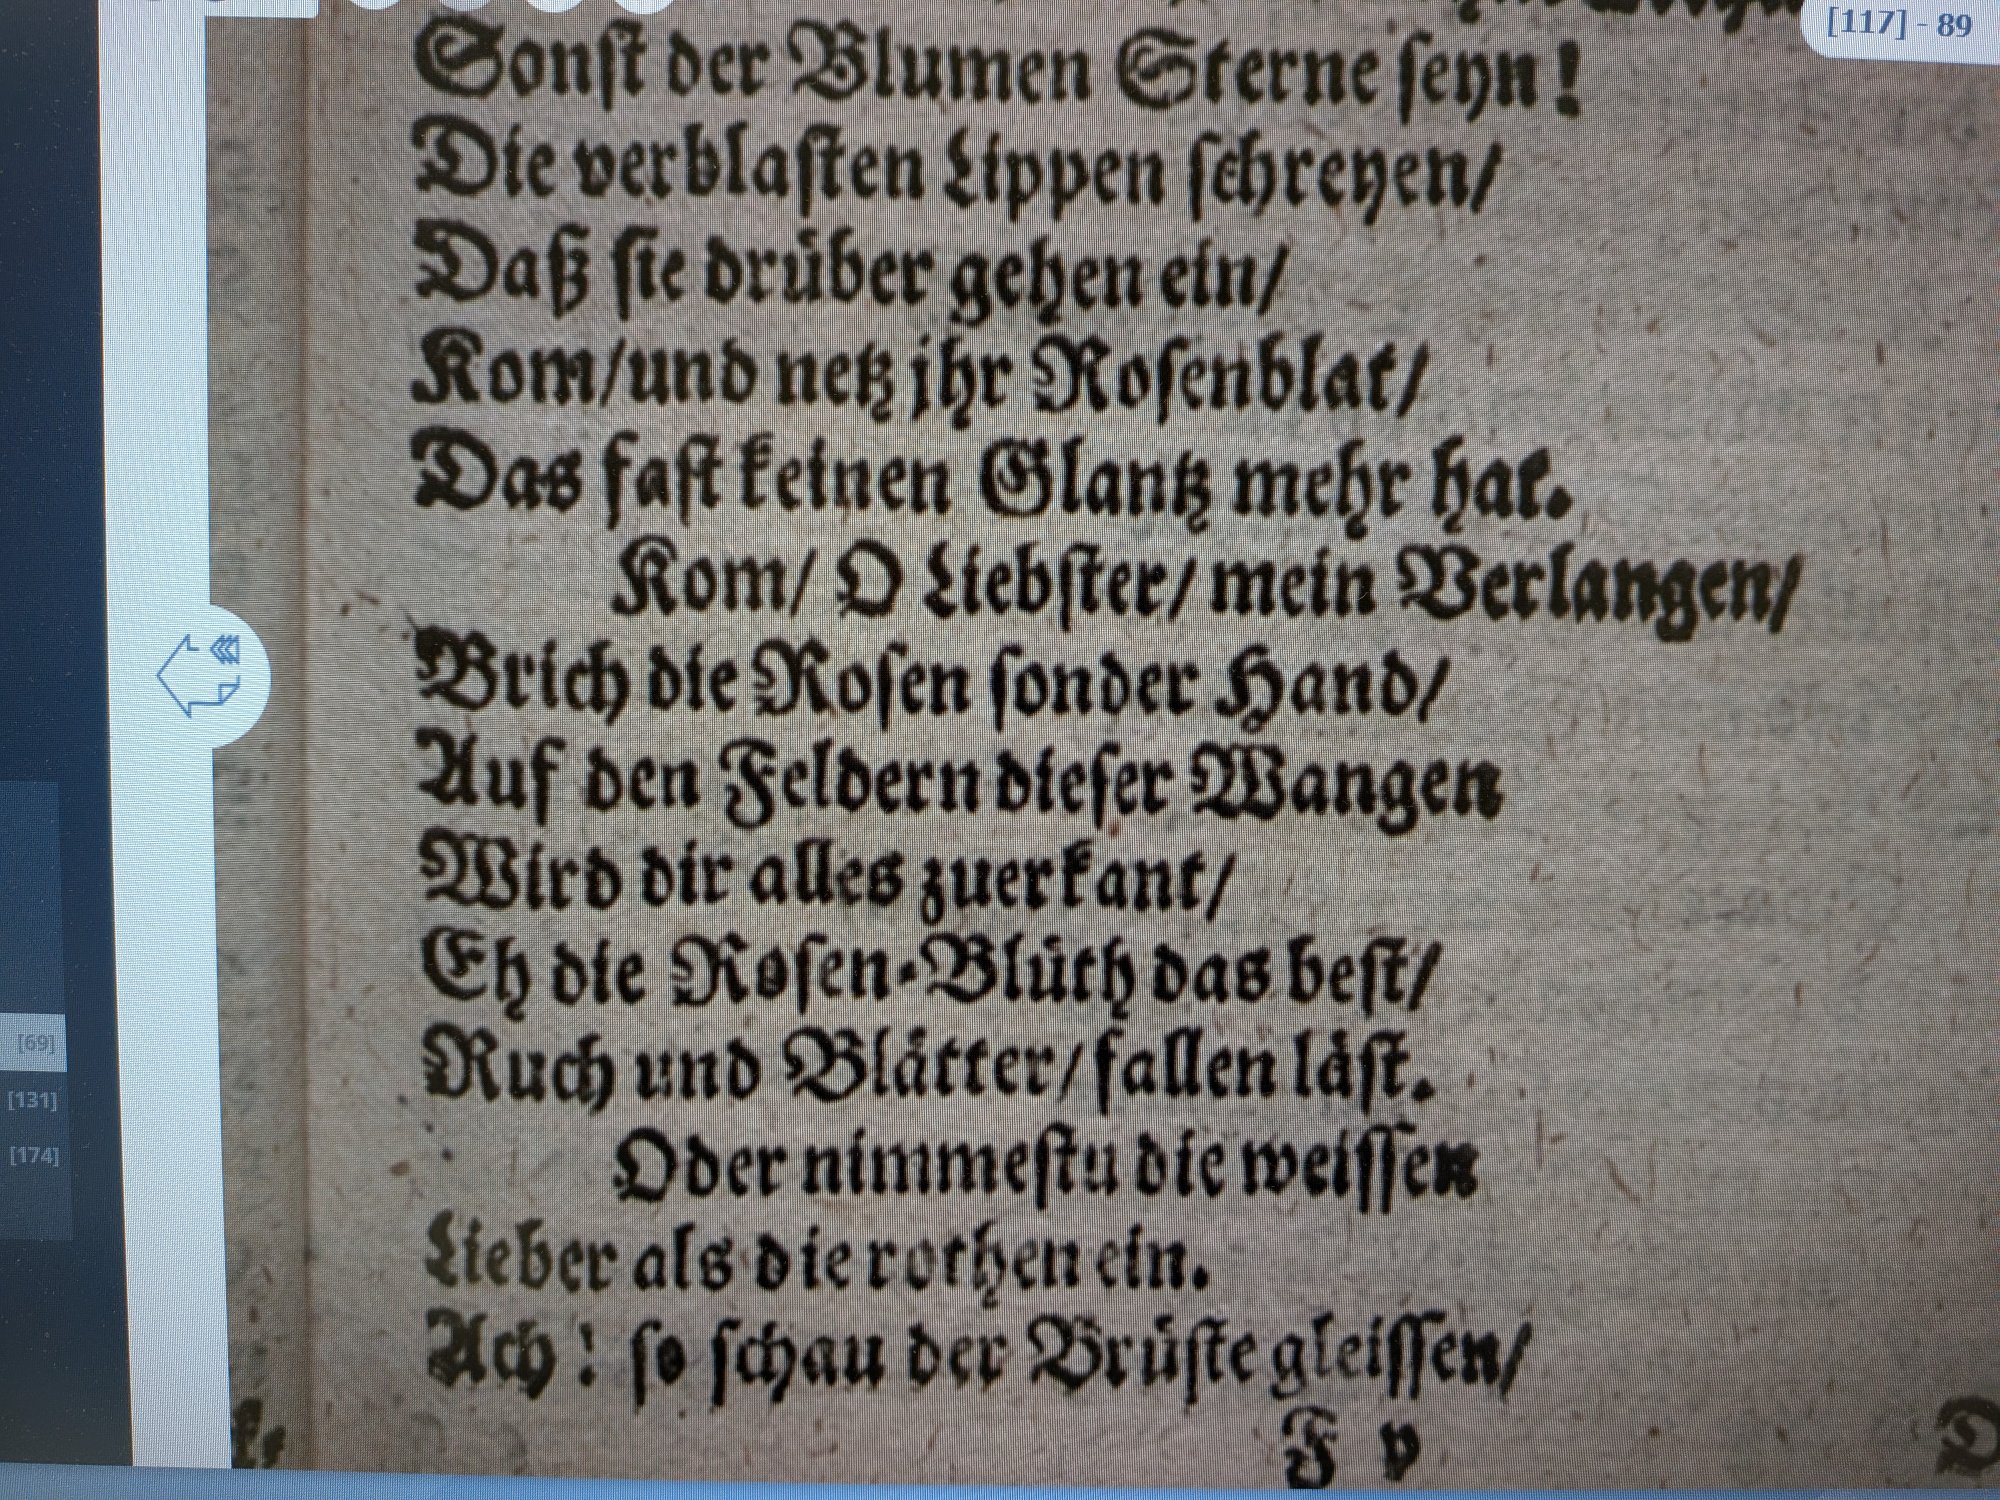 [117] - 89
Sonſt der Blumen Sterne ſeyn!
Die verblaſten Lippen ſchreyen/
Daß ſie druͤber gehen ein/
Kom/und netz jhr Roſenblat/
Das faſt keinen Glantz mehr hat.
Kom/ O Liebſter/ mein Verlangen/
Brich die Roſen ſonder Hand/
Auf den Feldern dieſer Wangen
Wird dir alles zuerkant/
Eh die Roſen-Bluͤth das beſt/
Ruch und Blaͤtter/ fallen laͤſt.
Oder nimmeſtu die weiſſen
Lieber als die rothen ein.
Ach! ſo ſchau der Bruͤſte gleiſſen/
F v
[69]
[131]
[174]